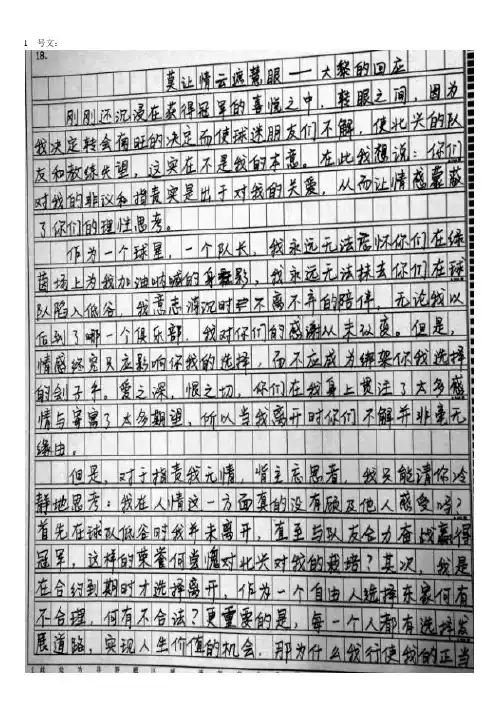 1 号文：
18.
莫让情云遮慧眼——大黎的回应
刚刚还沉浸在获得冠军的喜悦之中，转眼之间，因为
我决定转会南旺的决定而使球迷朋友们不解，使北兴的队
友和教练失望，这实在不是我的本意。在此我想说：你们
对我的非议和指责实是出于对我的关爱，从而让情感蒙蔽
了你们的理性思考。
作为一个球星，一个队长，我永远无法忘怀你们在绿
茵场上为我加油呐喊的身影，我永远无法抹去你们在球
队陷入低谷，我意志消沉时不离不弃的陪伴，无论我以
后到了哪一个俱乐部，我对你们的感谢从未改变。但是，
情感终究只应影响你我的选择，而不应成为绑架你我选择
的刽子手。爱之深，恨之切，你们在我身上贯注了太多感
情与寄寓了太多期望，所以当我离开时你们不解并非毫无
缘由。
但是，对于指责我无情，背主忘恩者，我只能请你冷
静地思考：我在人情这一方面真的没有顾及他人感受吗？
首先在球队低谷时我并未离开，直至与队友合力奋战赢得
冠军，这样的荣誉何尝愧对北兴对我的栽培？其次，我是
在合约到期时才选择离开，作为一个自由人选择东家何有
不合理，何有不合法？更重要的是，每一个人都有选择发
展道路，实现人生价值的机会，那为什么我行使我的正当